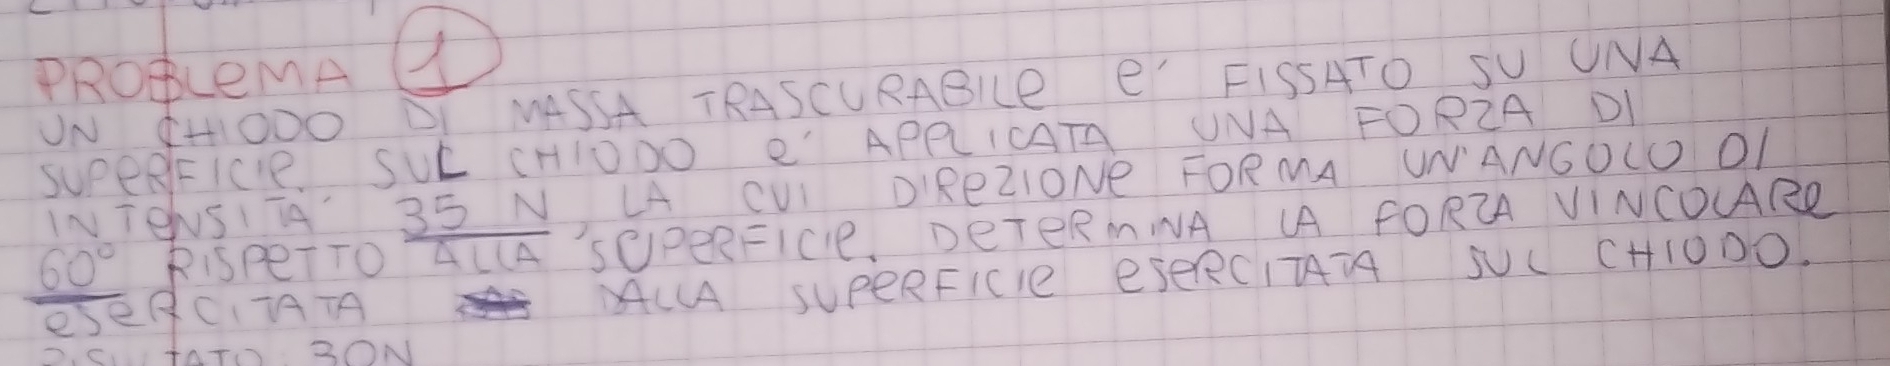 PROBLEMA 1
UN CHIODO DI MASSA TRASCURABILE E' FISSATO SU UNA
SUPERFICIE. SUL CHIODO E' APPLICATA UNA FORZA DI
INTENSITA' 35 N LA CUI DIREZIONE FORMA UN'ANGOLO DI
60° RISPETTO ALLA SUPERFICIE. DETERMINA LA FORZA VINCOLARE
ESERCITATA DALLA SUPERFICIE ESERCITATA SUL CHIODO.
RISULTATO 30N